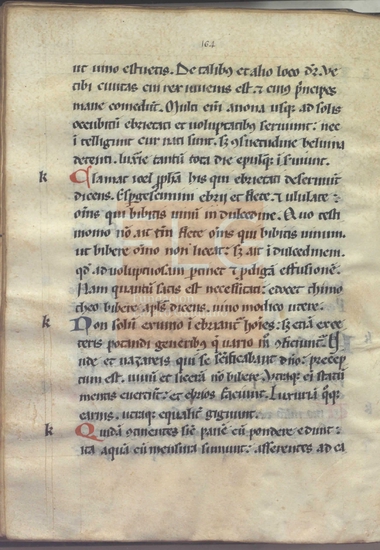 164
ut uino estuetis. De talibꝰ et alio loco dr̄. Ve
tibi ciuitas cui rex iuuenis est. ⁊ cuiꝰ p̃ncipes
mane comedūt. Multi eī anona usqꝫ ad solis
occubitū ebrietati et uoluptatibꝰ seruiunt: nec
ītelligunt cur nati sunt. sꝫ ꝯsuetudine beluina
detenti. luxīe tantū tota die epulisqꝫ īseruiunt.
k Clamat ioel ꝓpħa his qui ebrietati deseruiūt
dicens. Expgescimini ebrij et flete. ⁊ ululate:
om̄s qui bibitis uinū in dulcedine. Ex quo testi
monio nō ait tm̄ flete om̄s qui bibitis uinum.
ut bibere oīno non liceat: sꝫ ait ī dulcedinem.
qd̄ ad uoluptuosam ptinet ⁊ pdigā effusionē.
Nam quantū satis est necessitati: edocet thimo
theo bibere apl̄s dicens. uino modico utere.
k Non solū ex uino īebriant̄ hoīes: sꝫ etiā ex ce
teris potandi generibꝰ q̄ uario m̄ ꝯficiunt̄. U
nde et nazareis qui se sc̄ificabant dn̄o: precep
tum est. uinū et sicerā nō bibere. Utraqꝫ eī statū
mentis euertūt: et ebrios faciunt. Luxuriā q̄qꝫ
carnis. utraqꝫ equalit̄ gignunt.
k Quidā ꝯtinentes sic̄ panē cū pondere edunt:
ita aquā cū mensura sumunt. asserentes ad ca